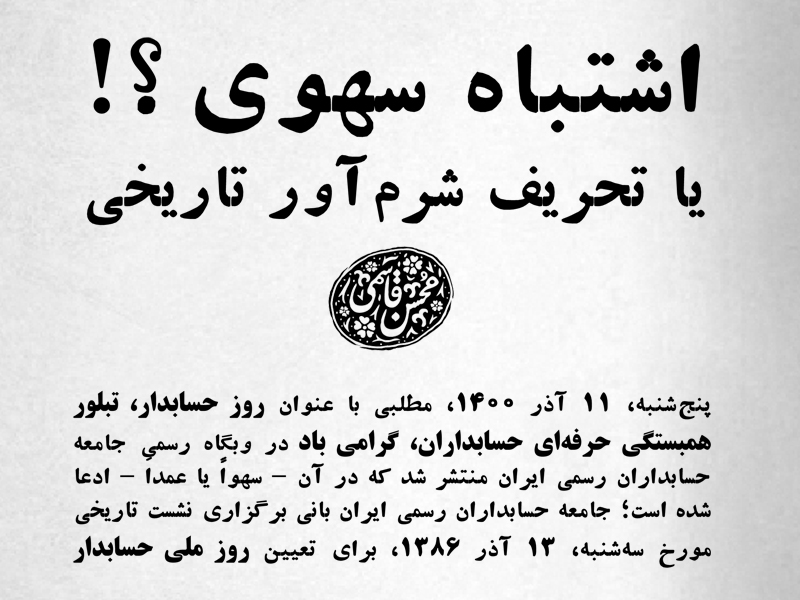 اشتباه سهوی ؟!
یا تحریف شرم‌آور تاریخی
محسن قاسمی
پنج‌شنبه، ۱۱ آذر ۱۴۰۰، مطلبی با عنوان روز حسابدار، تبلور
همبستگی حرفه‌ای حسابداران، گرامی باد در وبگاه رسمیِ جامعه
حسابداران رسمی ایران منتشر شد که در آن – سهواً یا عمداً – ادعا
شده است؛ جامعه حسابداران رسمی ایران بانی برگزاری نشست تاریخی
مورخ سه‌شنبه، ۱۳ آذر ۱۳۸۶، برای تعیین روز ملی حسابدار